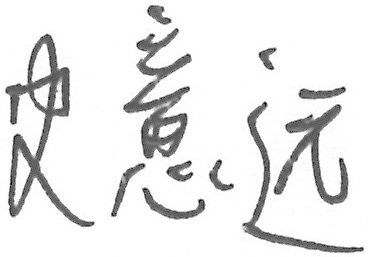 史意远